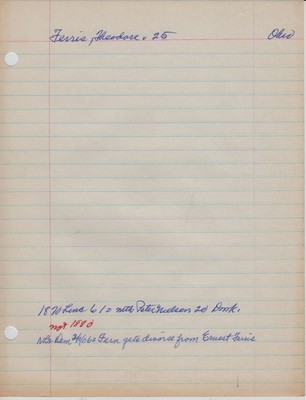 Ferris, Theodore. 25 Ohio
1870 Line 61 = with Peter Hudson 20 Dmk.
not 1880
Fern gets divorce from Ernest Ferris